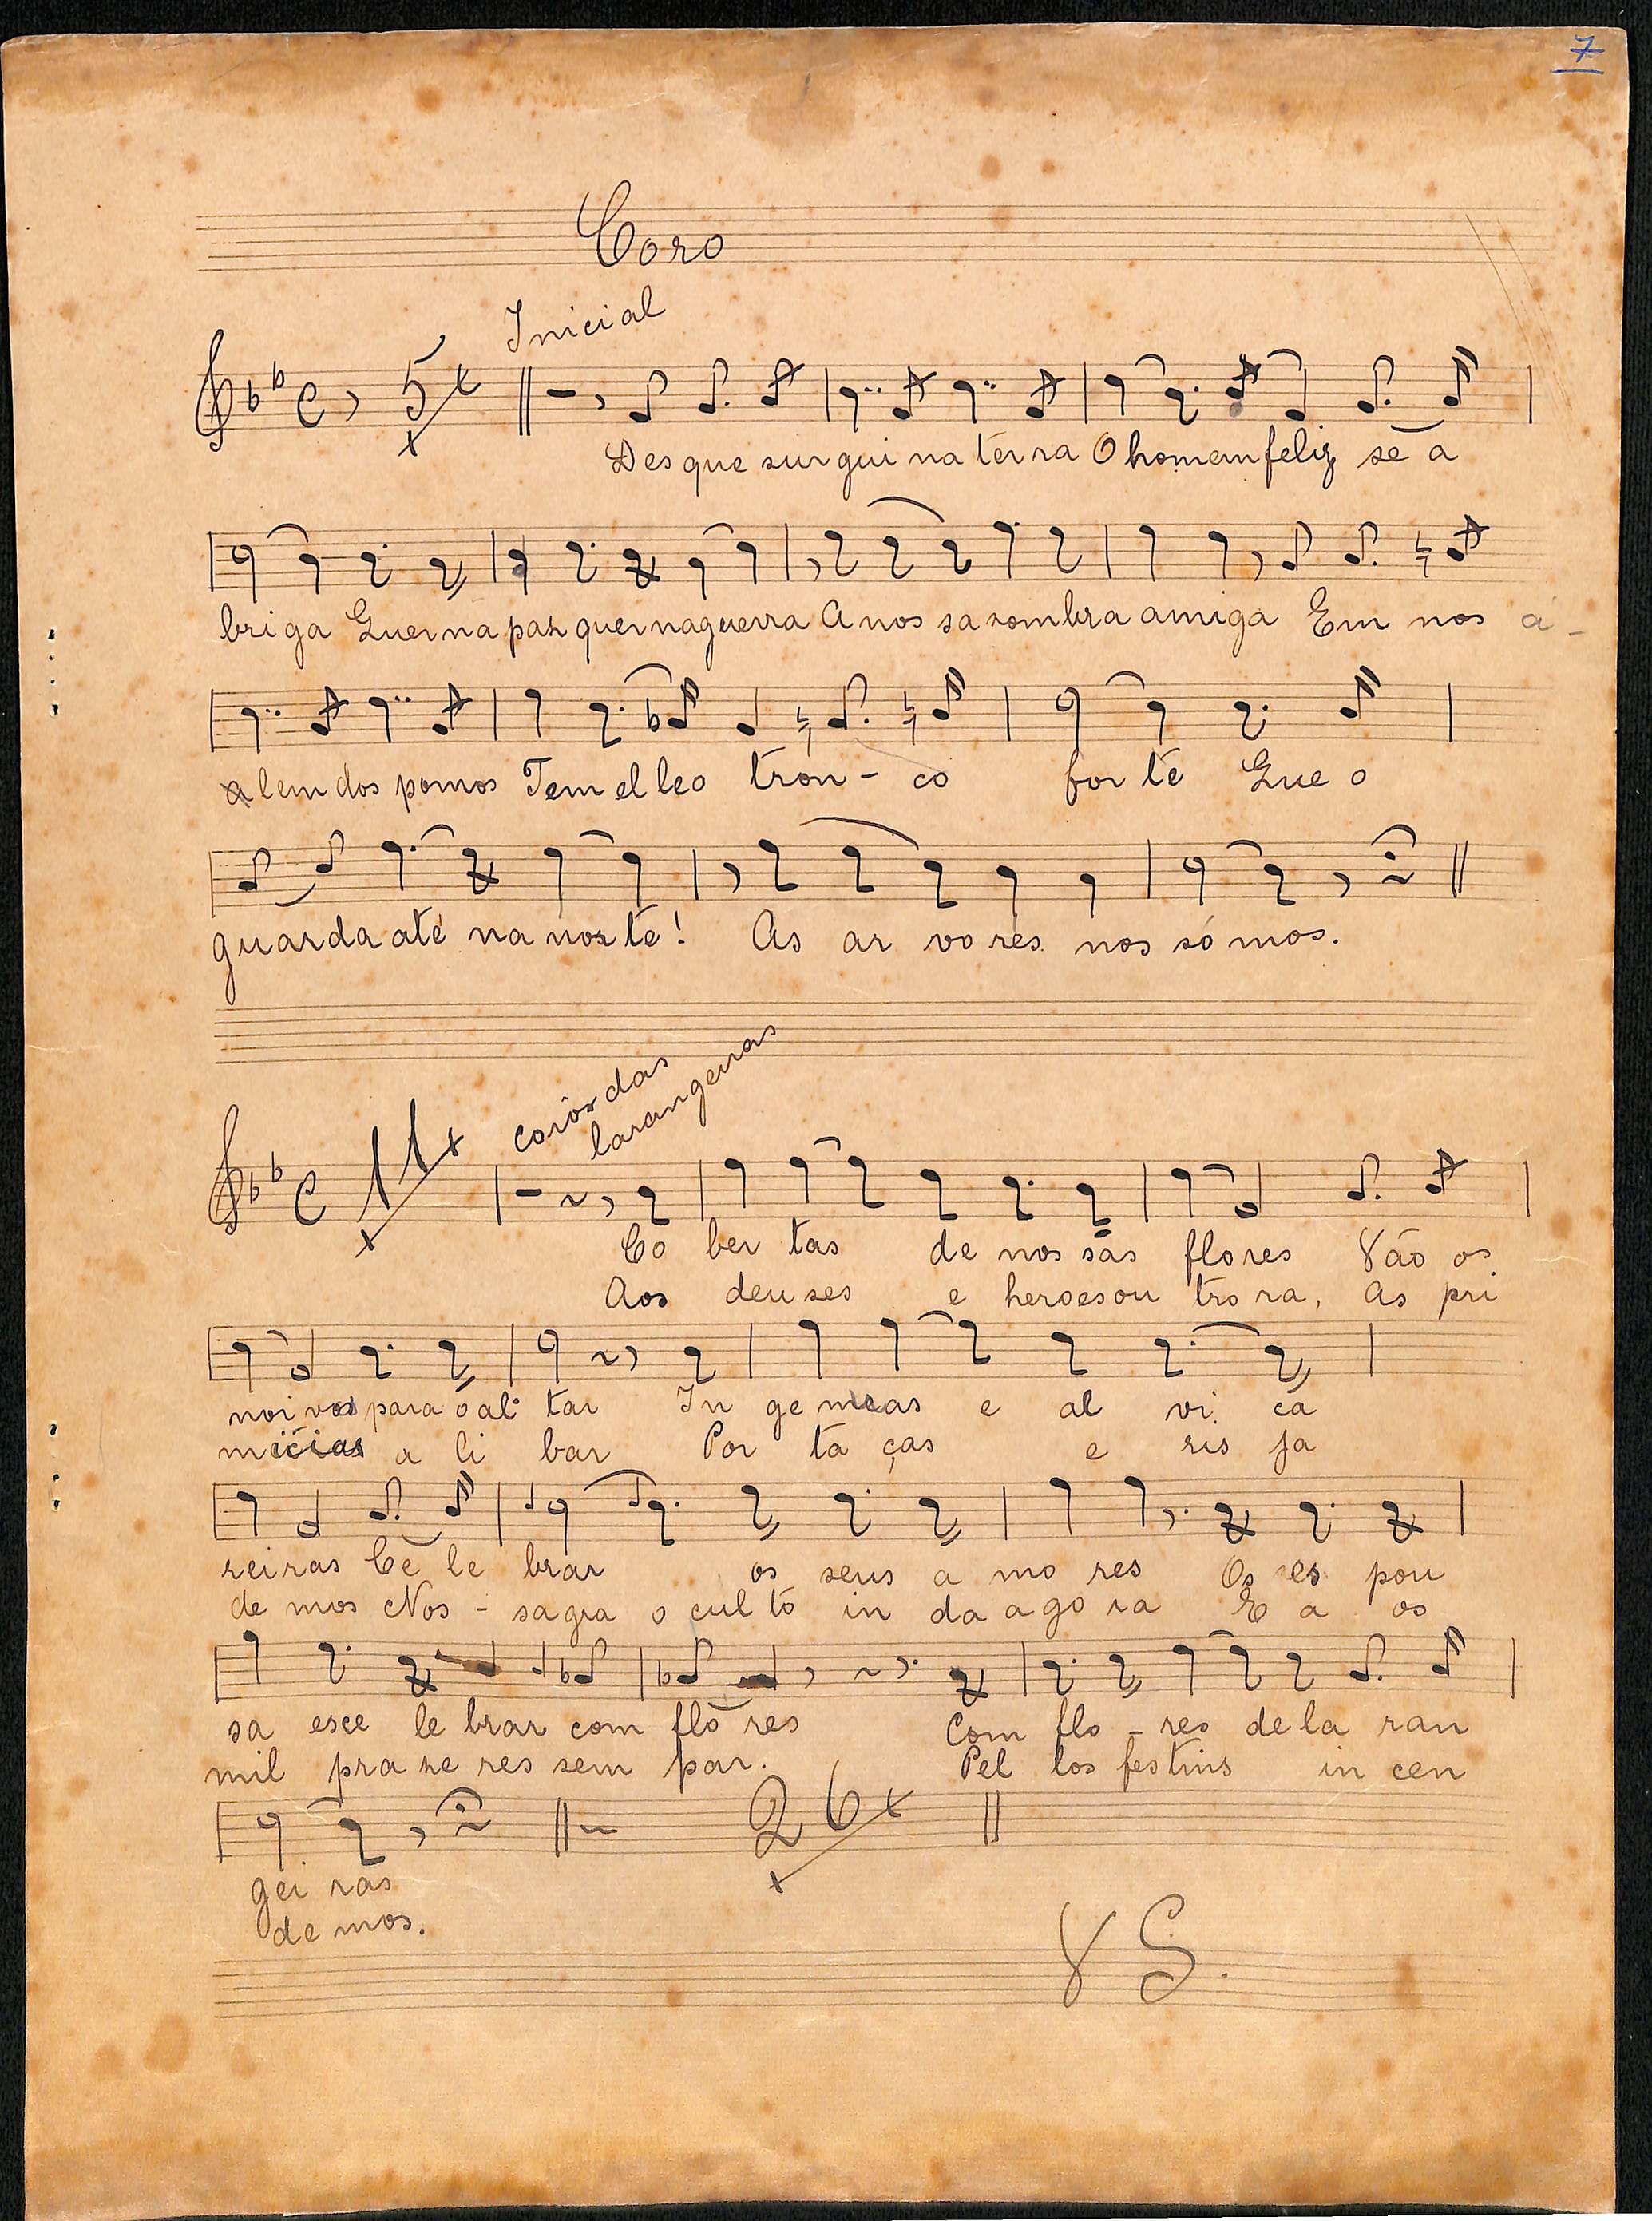 7
Coro
Inicial
5
Des que sur gui na ter ra O homem feliz se a
bri ga Quer na paz quer na guerra A nos sa sombra amiga Em nos a -
alem dos pomos Tem el le o tron - co for te Que o
guarda até na morte! As ar vo res nos so mos.
coros das
larangeiras
11
Co ber tas de nos sas flores Vão os
Aos deuses e heroes ou tro ra, As pri
noi vos para o al tar In ge nuas e al vi ça
micias a li bar Por ta ças e ris ja
reiras Ce le brar os seus a mo res Os es pou
de mos Nos - sa gra o cul to in da a go ra E a os
sa es ce le brar com flo res Com flo - res de la ran
mil pra ze res sem par. Pel los festins in cen
gei ras
de mos.
26
V S.